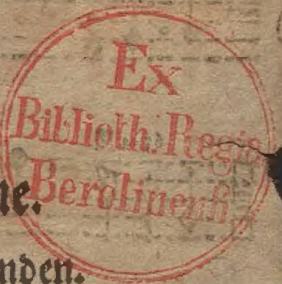 Ex
Biblioth. Regia
Berolinenſi.
ne.
nden.